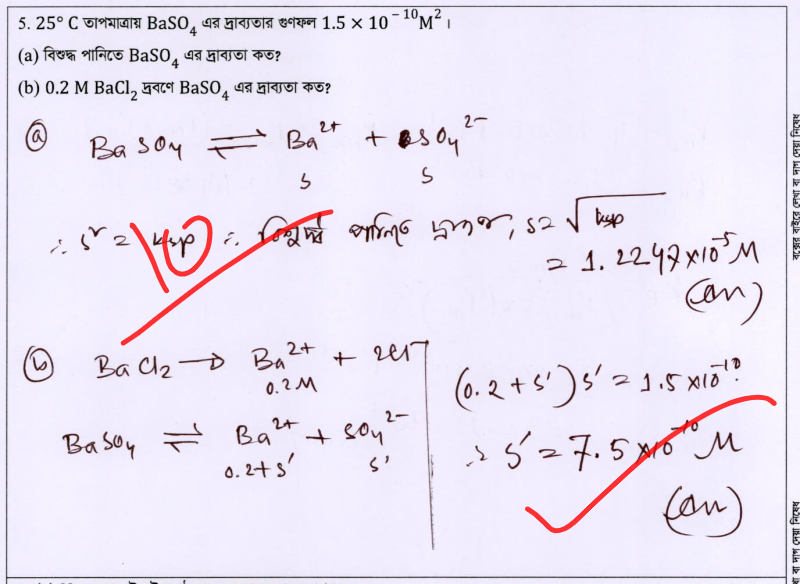 5. 25° C তাপমাত্রায় BaSO₄ এর দ্রাব্যতার গুণফল 1.5 × 10⁻¹⁰M²।
(a) বিশুদ্ধ পানিতে BaSO₄ এর দ্রাব্যতা কত?
(b) 0.2 M BaCl₂ দ্রবণে BaSO₄ এর দ্রাব্যতা কত?
ⓐ BaSO₄ ⇌ Ba²⁺ + SO₄²⁻
s s
∴ s² = ksp ∴ বিশুদ্ধ পানিতে দ্রাব্যতা, s = √ksp
10
= 1.2247×10⁻⁵ M
(An)
ⓑ BaCl₂ → Ba²⁺ + 2Cl⁻
0.2M
BaSO₄ ⇌ Ba²⁺ + SO₄²⁻
0.2+s' s'
(0.2+s')s' = 1.5×10⁻¹⁰
∴ s' = 7.5×10⁻¹⁰ M
(An)
বক্সের বাইরে লেখা বা দাগ দেয়া নিষেধ
বা দাগ দেয়া নিষেধ